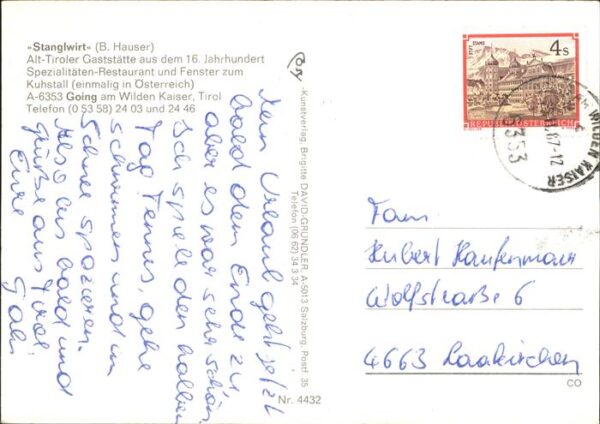 »Stanglwirt« (B. Hauser)
Alt-Tiroler Gaststätte aus dem 16. Jahrhundert
Spezialitäten-Restaurant und Fenster zum
Kuhstall (einmalig in Österreich)
A-6353 Going am Wilden Kaiser, Tirol
Telefon (0 53 58) 24 03 und 24 46
Mein Urlaub geht jetzt
bald dem Ende zu
aber es war sehr schön.
Ich spiele den halben
Tag Tennis, gehe
schwimmen und im
Schnee spazieren.
Also bis bald und
Grüße aus Tirol
Eure Gabi
Kunstverlag Brigitte DAVID-GRÜNDLER, A-5013 Salzburg, Postf. 35
Telefon (06 62) 34 3 34
Nr. 4432
4 S
STIFT STAMS
REPUBLIK ÖSTERREICH
AM WILDEN KAISER
87-12
6353
Fam.
Hubert Haufenmair
Wolfstraße 6
4663 Laakirchen
CO